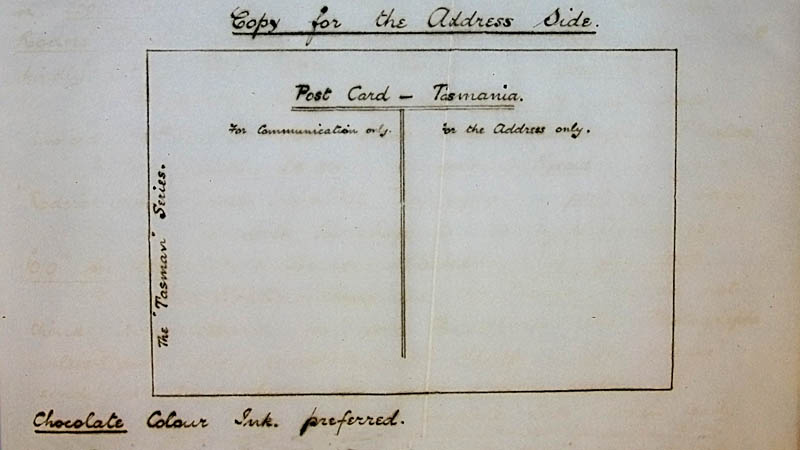 Copy for the Address Side.
Post Card — Tasmania.
For Communication only.
For the Address only.
The "Tasman" Series.
Chocolate Colour Ink. preferred.